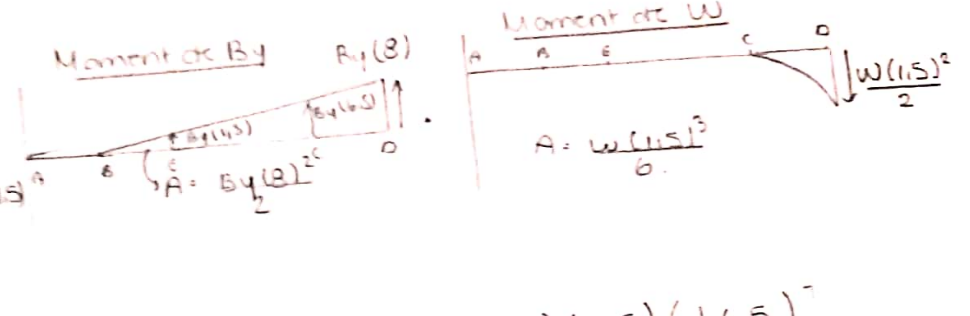 Moment de By
By(8)
By(1,5)
By(6,5)
A B E C D
A = By(8)²
2
Moment de W
A B E C D
W(1,5)²
2
A = W(1,5)³
6